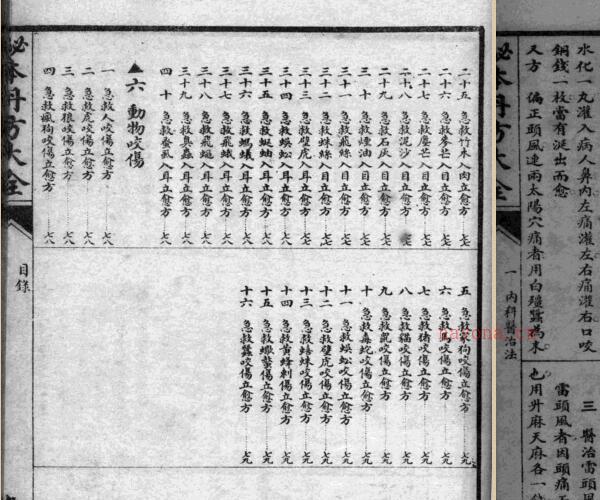 水化一丸灌入病人鼻內左痛灌左右痛灌右口咬
銅錢一枝當有涎出而愈
又方　偏正頭風連兩太陽穴痛者用白殭蠶為末
三　醫治雷頭風
雷頭風者因頭痛
也用升麻天麻各一
一　內科醫治法
秘本丹方大全
二十五　急救竹木入肉立愈方……七七
二十六　急救麥芒入目立愈方……七七
二十七　急救塵芒入目立愈方……七七
二十八　急救泥沙入目立愈方……七七
二十九　急救石灰入目立愈方……七七
三十　急救煙油入目立愈方……七七
三十一　急救飛絲入目立愈方……七七
三十二　急救蛛絲入目立愈方……七七
三十三　急救壁虎入耳立愈方……七八
三十四　急救蜈蚣入耳立愈方……七八
三十五　急救蜒蚰入耳立愈方……七八
三十六　急救螞蟻入耳立愈方……七八
三十七　急救飛蛾入耳立愈方……七八
三十八　急救飛蠅入耳立愈方……七八
三十九　急救臭蟲入耳立愈方……七八
四十　急救蚤虱入耳立愈方……七八
▲六　動物咬傷
一　急救人咬傷立愈方……七八
二　急救虎咬傷立愈方……七八
三　急救狼咬傷立愈方……七八
四　急救瘋狗咬傷立愈方……七八
五　急救家狗咬傷立愈方……七九
六　急救馬咬傷立愈方……七九
七　急救猪咬傷立愈方……七九
八　急救貓咬傷立愈方……七九
九　急救鼠咬傷立愈方……七九
十　急救毒蛇咬傷立愈方……七九
十一　急救蜈蚣咬傷立愈方……七九
十二　急救壁虎咬傷立愈方……七九
十三　急救蜘蛛咬傷立愈方……七九
十四　急救黃蜂刺傷立愈方……七九
十五　急救蠍螫傷立愈方……七九
十六　急救蠶咬傷立愈方……七九
秘本丹方大全
目錄